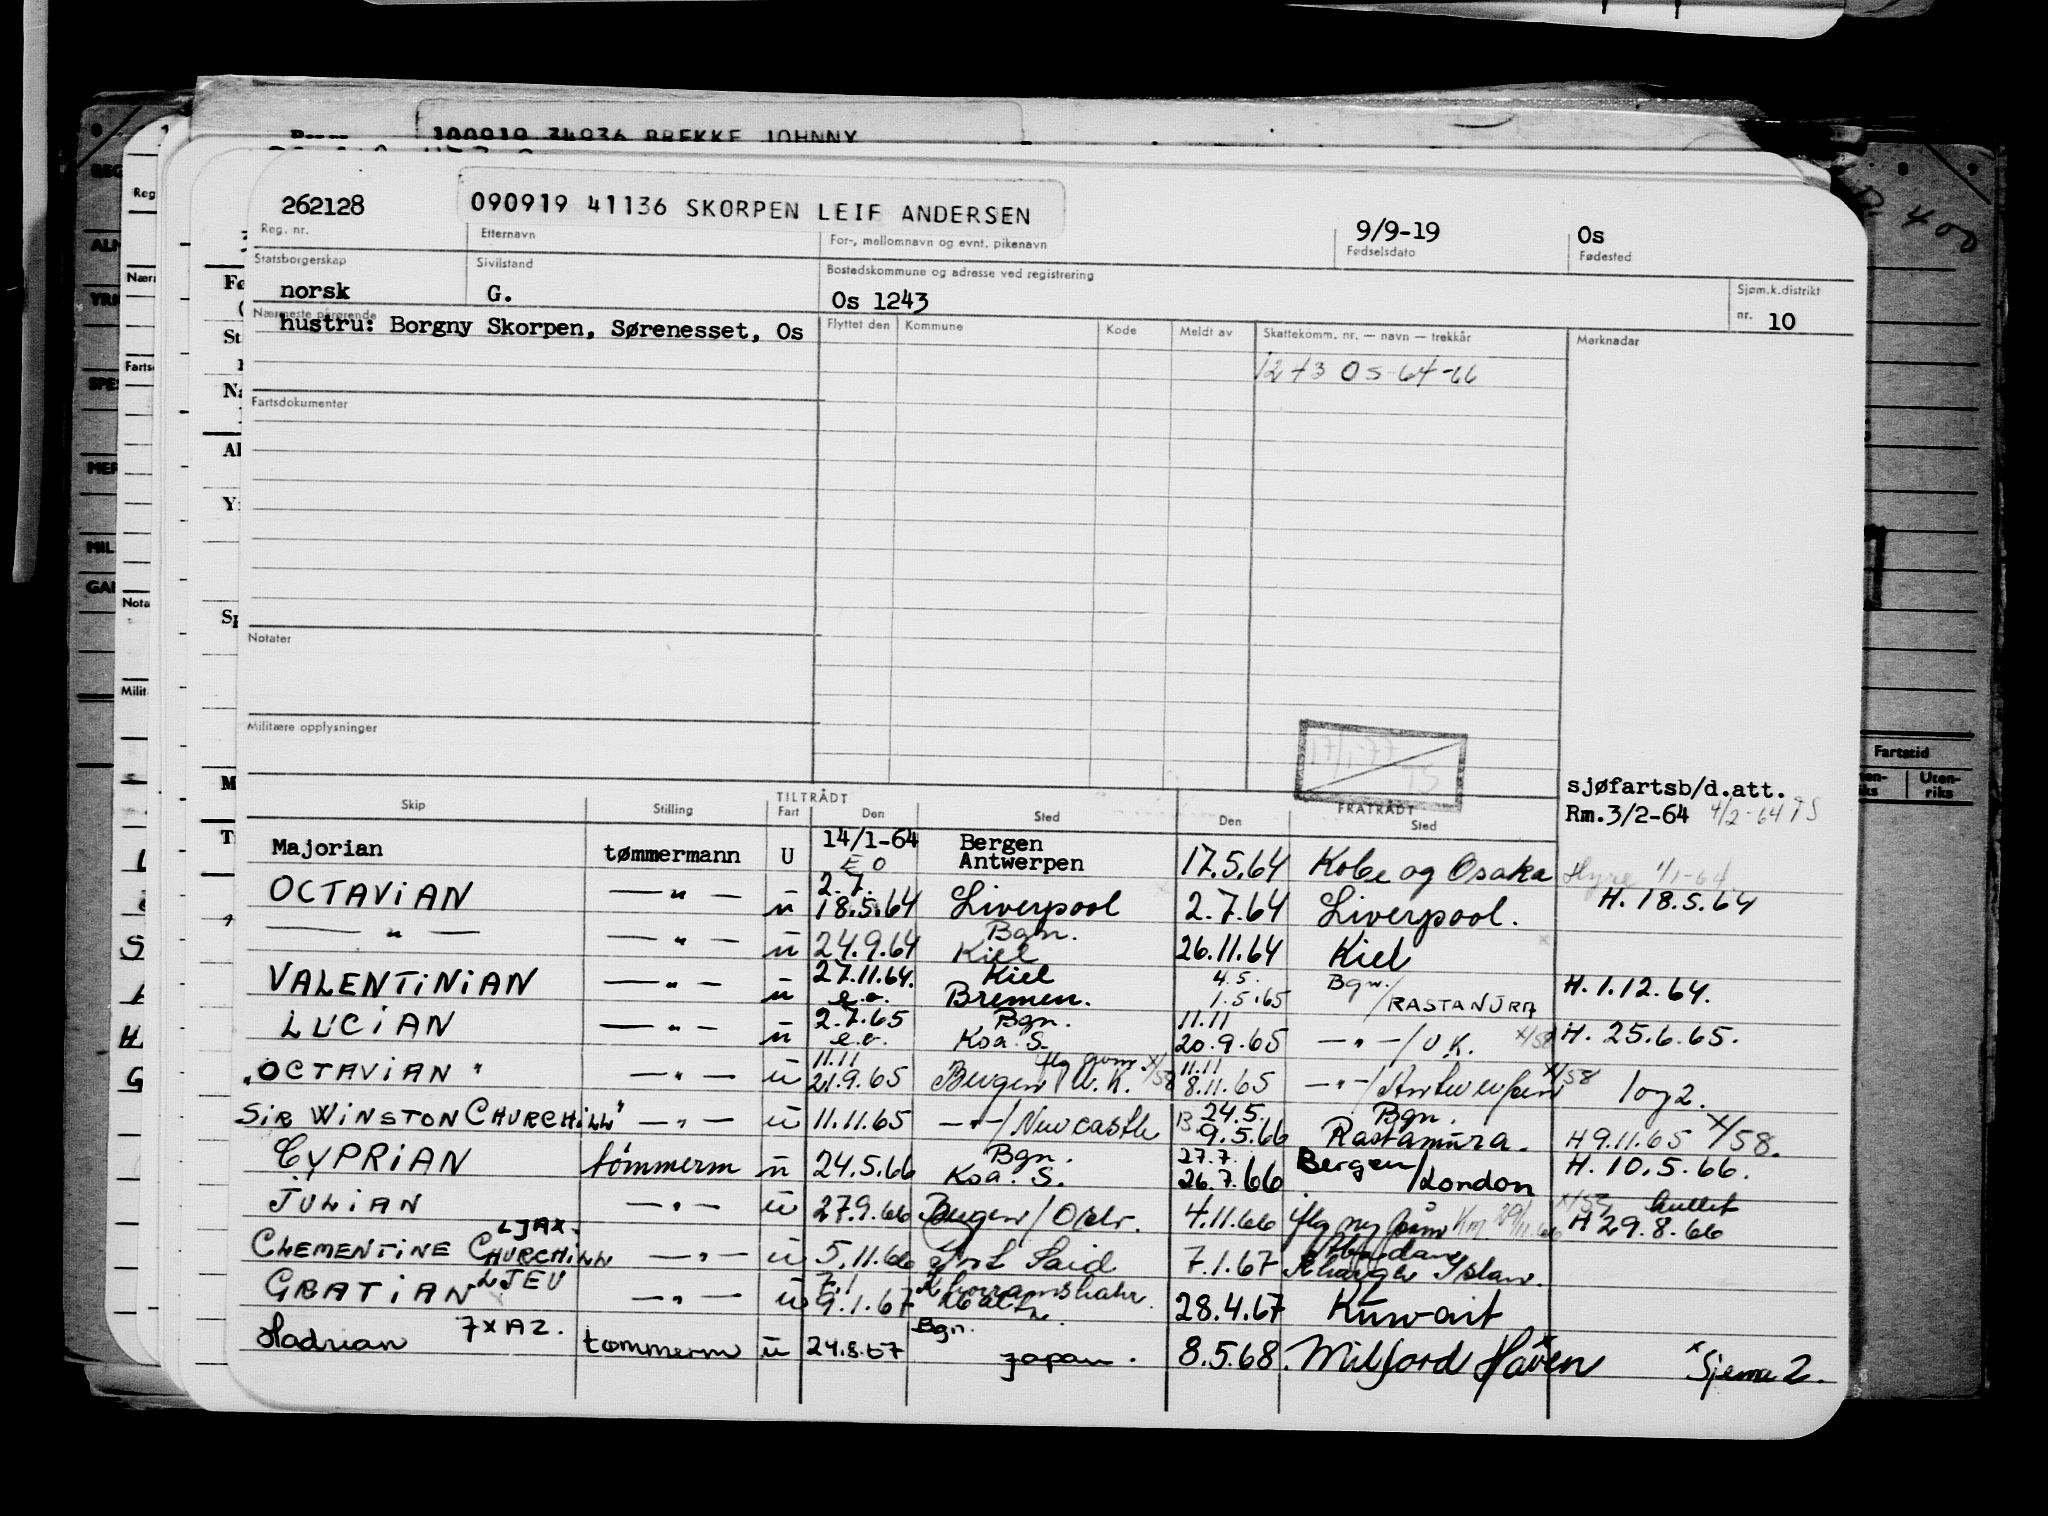 100919 34936 BREKKE JOHNNY
262128 090919 41136 SKORPEN LEIF ANDERSEN 9/9-19 Os
Reg. nr. Etternavn For-, mellomnavn og evnt. pikenavn Fødselsdato Fødested
Statsborgerskap Sivilstand Bostedskommune og adresse ved registrering Sjøm.k.distrikt
norsk G. Os 1243 nr. 10
Nærmeste pårørende Flyttet den Kommune Kode Meldt av Skattekomm. nr. — navn — trekkår Merknader
hustru: Borgny Skorpen, Sørenesset, Os
1243 Os 64-66
Fartsdokumenter
Notater
Militære opplysninger
sjøfartsb/d.att.
Rm.3/2-64 4/2-64 TS
TILTRÅDT FRATRÅDT
Skip Stilling Fart Den Sted Den Sted
Majorian tømmermann U 14/1-64 EO Bergen Antwerpen 17.5.64 Kobe og Osaka Hyre 1/1-64
OCTAVIAN — " — u 2.7. 18.5.64 Liverpool 2.7.64 Liverpool. H. 18.5.64
— " — — " — u 24.9.64 Bgn. Kiel 26.11.64 Kiel
VALENTINIAN — " — u 27.11.64. e.o. Kiel Bremen. 4.5. 1.5.65 Bgn./RASTANURA H.1.12.64.
LUCIAN — " — u 2.7.65 e.o. Bgn. Koa. S. 11.11 20.9.65 — " —/U.K. x/58 H. 25.6.65.
"OCTAVIAN" — " — u 11.11 21.9.65 Bergen/U.K. x/58 11.11 8.11.65 — " —/Antwerpen x/58 1 og 2.
SIR WINSTON CHURCHILL" — " — u 11.11.65 — " —/Newcastle B. 24.5. 9.5.66 Bgn. Rastanura. H 9.11.65 x/58.
CYPRIAN tømmerm u 24.5.66 Bgn. Koa. S. 27.7. 26.7.66 Bergen/London H. 10.5.66.
JULIAN — " — u 27.9.66 Bergen/ 4.11.66 iflg ny x/58 H 29.8.66
CLEMENTINE CHURCHILL LJAX. — " — u 5.11.66 Port Said 7.1.67 Abadan Kharge Islan.
GRATIAN LJEV — " — u 7.1 9.1.67 Khorramshahr 28.4.67 Kuwait
Hadrian 7XAZ. tømmerm u 24.8.67 Bgn. Japan. 8.5.68. Milford Haven x Sjema 2.
Fartstid
Uten-
riks